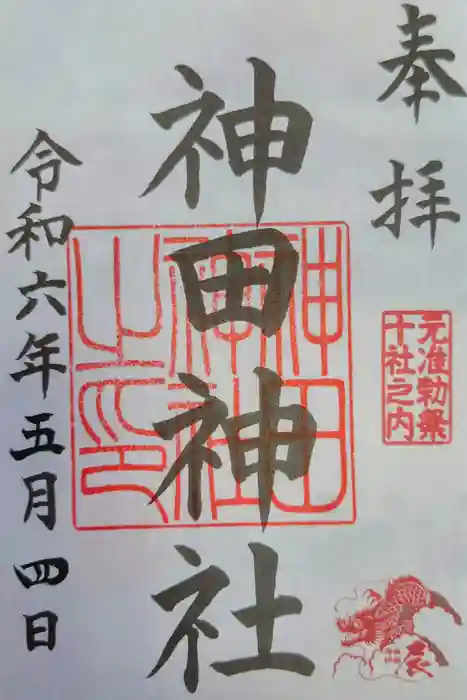 奉拝
元准勅祭
十社之内
辰
神田神社
神田神社之印
令和六年五月四日